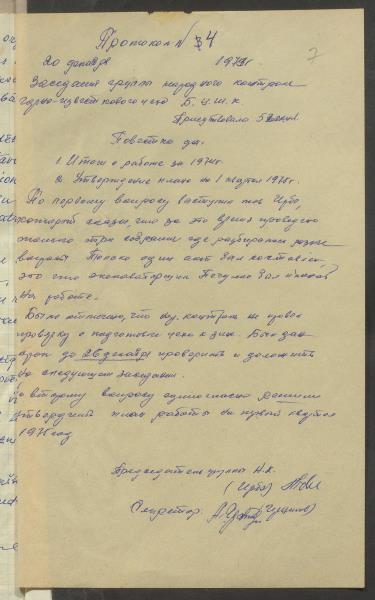 Протокол № 4
7
20 декабря 197 г.
Заседания группы народного контроля
горно-известкового цеха Б.Ц.Ш.К.
Присутствовало 5 человек.
Повестка дня.
1. Итоги о работе за 1974г.
2. Утверждение плана на 1 квартал 1975г.
По первому вопросу выступил тов.
который сказал что за это время проведено
только три собрания где разбирались разные
вопросы. Только один акт был составлен
это что экскаваторщик был пьяный
на работе.
Было отмечено, что нар. контроль не провел
проверку о подготовке цеха к зиме. Был дан
срок до 26 декабря проверить и доложить
на следующем заседании.
По второму вопросу единогласно решили
утвердить план работы на первый квартал
1975 год
Председатель группы Н.К.
Секретарь: